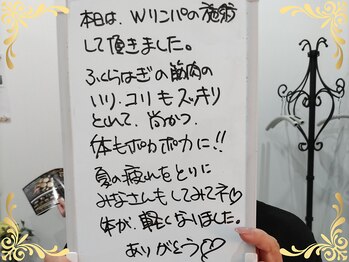 本日は、Wリンパの施術
して頂きました。
ふくらはぎの筋肉の
いり、コリもスッキリ
とれて、尚かつ
体もポカポカに!!
夏の疲れをとりに
みなさんもしてみてネ♡
体が、軽くなりました。
ありがとう♡